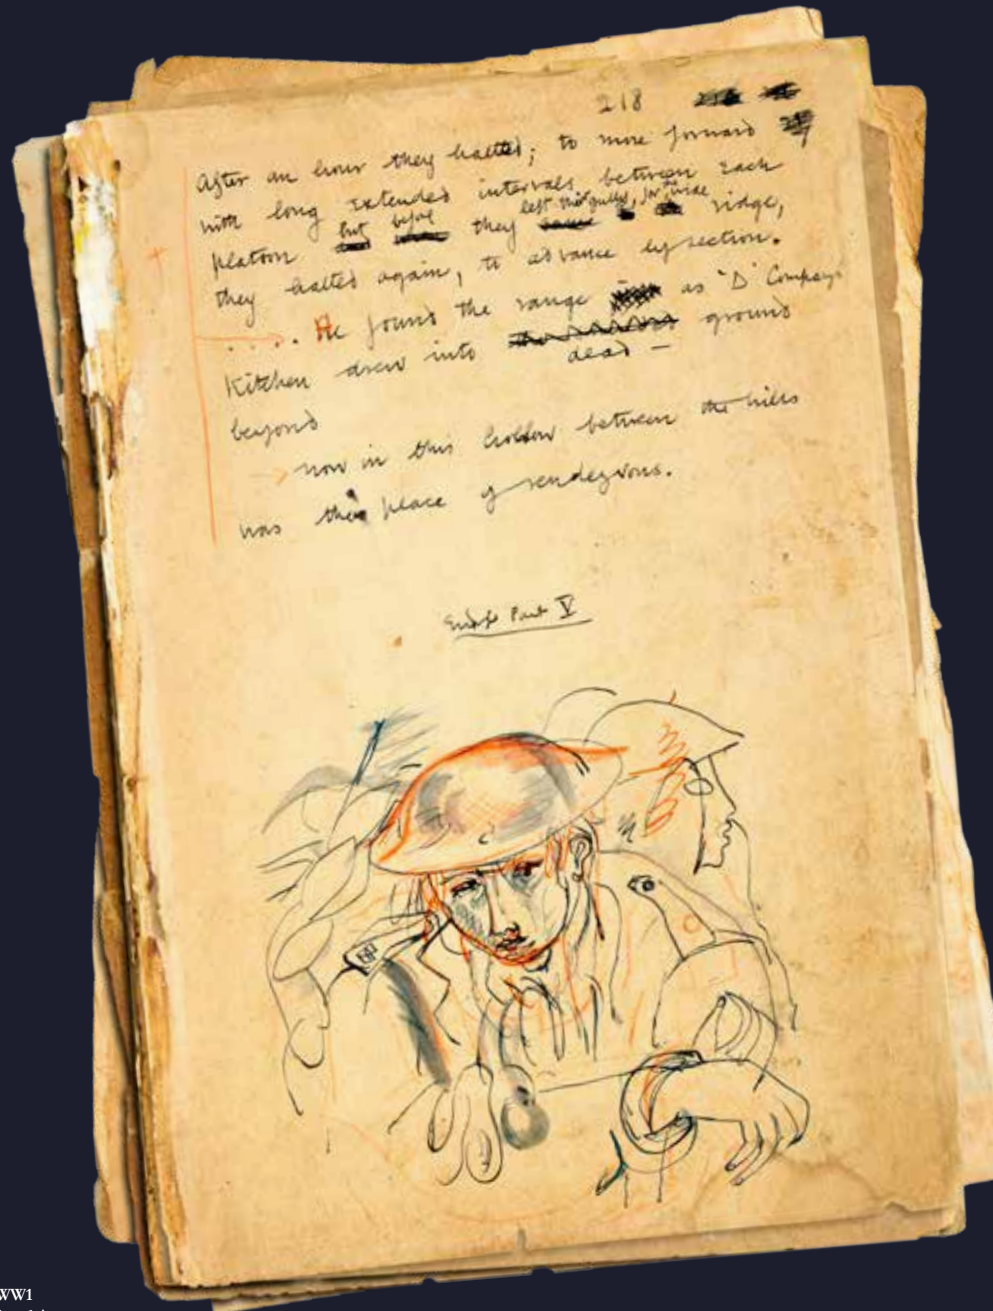 218
After an hour they halted; to move forward
with long extended intervals between each
left this gully, for the wide
platoon but before they ridge,
they halted again, to advance by section.
. . . . He found the range as 'D' Company
Kitchen drew into ground
dead –
beyond
now in this hollow between the hills
was their place of rendezvous.
End of Part V
WW1